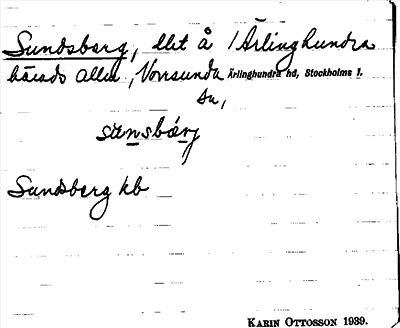 Sundsberg, llet å / Ärlinghundra
härads allm, Norrsunda Ärlinghundra hd, Stockholms l.
sn,
Sundsberg hb
KARIN OTTOSSON 1939.